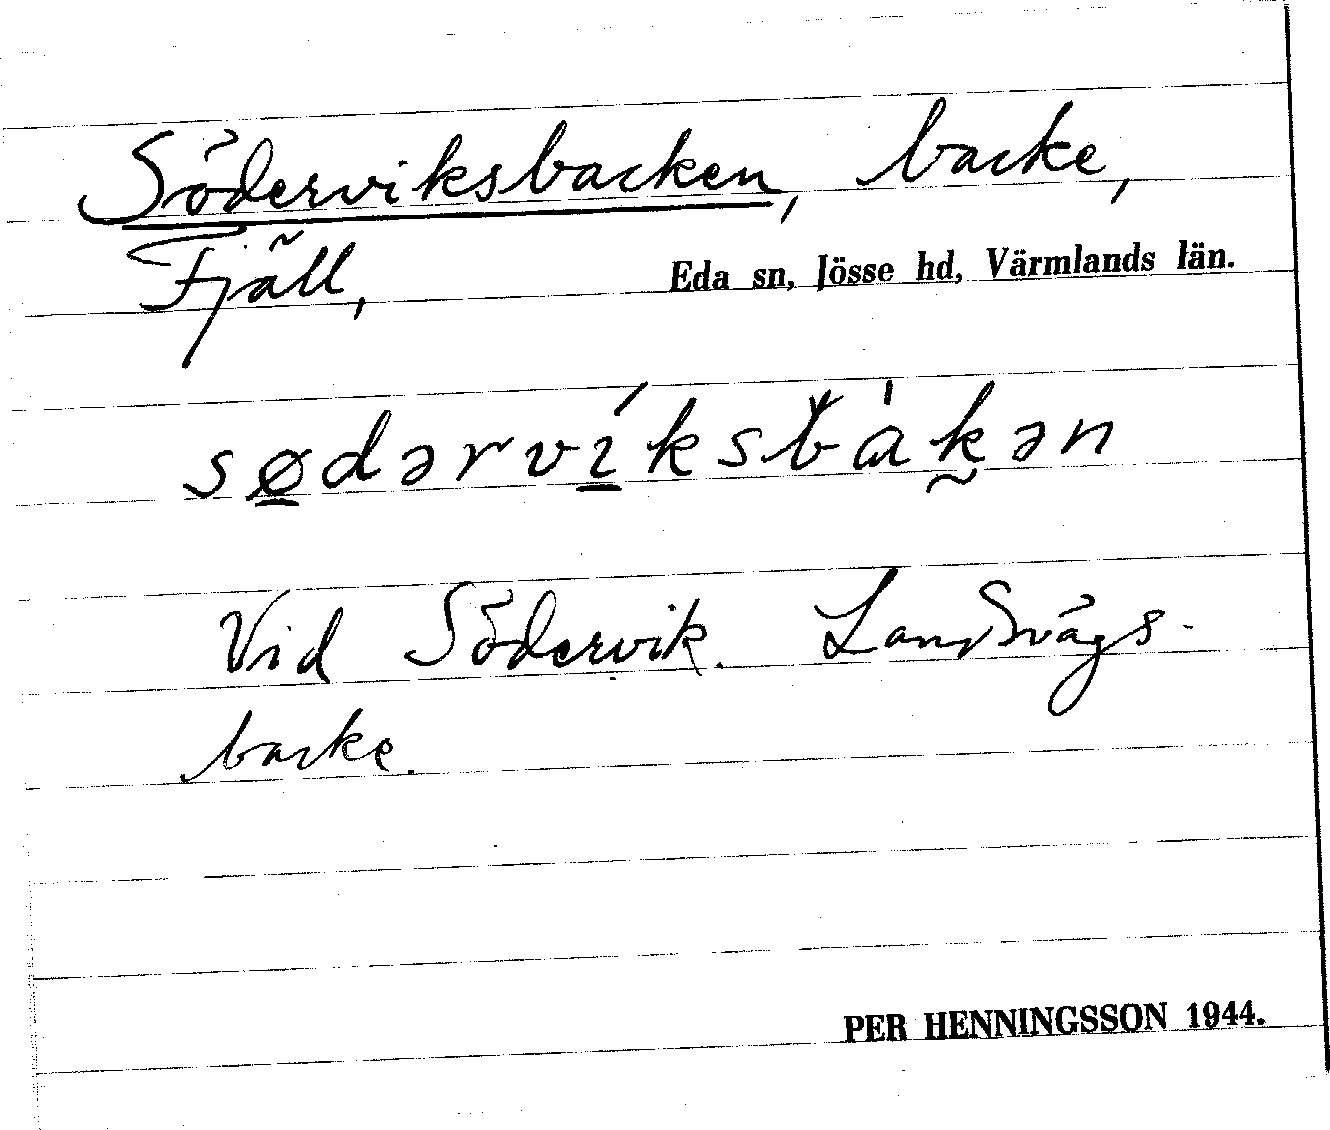 Söderviksbacken, backe,
Fjäll, Eda sn, Jösse hd, Värmlands län.
sø̱dərví̱ksbàk̰ən
Vid Södervik. Landsvägs-
backe.
PER HENNINGSSON 1944.